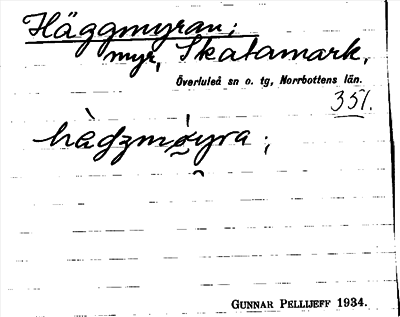 Häggmyran;
myr, Skatamark,
Överluleå sn o. tg, Norrbottens län.
351.
hàgzmøyra;
GUNNAR PELLIJEFF 1934.